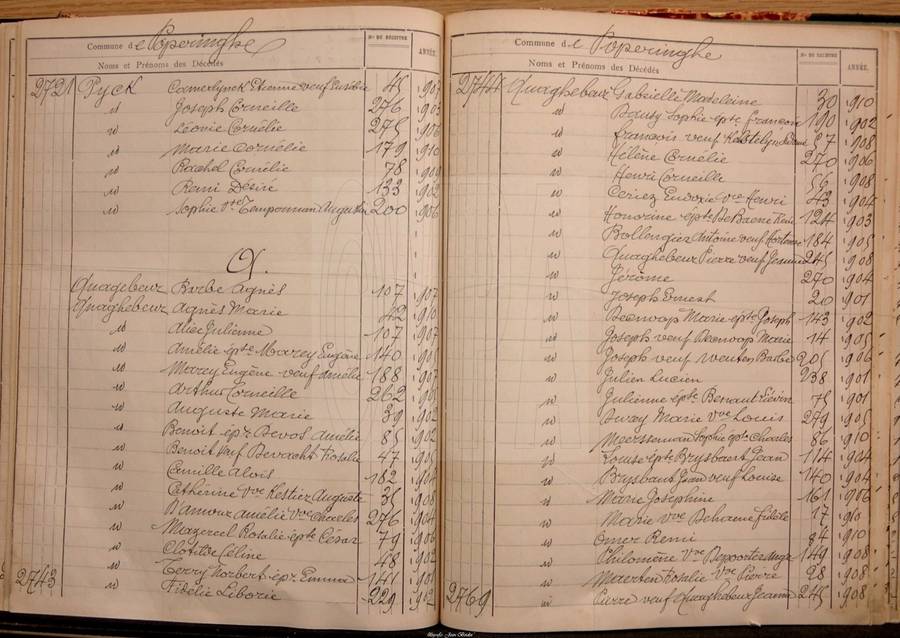 Commune de Poperinghe
Noms et Prénoms des Décédés
Nos DU REGISTRE
ANNÉE.
2721 Pyck Camerlynck Etienne veuf Eusébie 45 1903
id Joseph Corneille 276 1903
id Léonie Cornélie 275 1906
id Marie Cornélie 179 1910
id Rachel Cornélie 78
id Remi Désiré 133
id Sophie vve Temperman Augustin 200 1906
Q.
Quagebeur Barbe Agnès 107 1907
Quaghebeur Agnès Marie 42 1910
id Alice Julienne 107 1907
id Amélie épse Marey Eugène 140
id Marey Eugène veuf Amélie 188
id Arthur Corneille 262
id Auguste Marie 39 1902
id Benoit épx Devos Amélie 85 1902
id Benoit veuf Rosalie 47
id Camille Alois 182
id Catherine Vve Auguste 35 1908
id Amélie Vve Charles 276 1904
id Rosalie épse César 79 1906
id Clotilde Céline 48
id Terry Norbert épx Emma 141
2743 id Fidélie Liborie 229
Commune de Poperinghe
Noms et Prénoms des Décédés
Nos DU REGISTRE
ANNÉE.
2744 Quaghebeur Gabrielle Madeleine 30 1910
id Sophie épse François 190 1902
id François veuf 57 1908
id Hélène Cornélie 270 1906
id Henri Corneille 56 1908
id Ceriez Eudoxie Vve Henri 43 1904
id Honorine épse DeBaene 124 1903
id Bollengier Antoine veuf Hortense 184 1905
id Quaghebeur Pierre veuf Jeanne 245 1908
id Jérôme 270 1904
id Joseph Ernest 20 1901
id Marie épse Joseph 143 1902
id Joseph veuf Marie 14 1905
id Joseph veuf Wenten Barbe 205 1906
id Julien Lucien 238 1901
id Julienne épse Liévin 75 1901
id Marie Vve Louis 279 1905
id Meersseman Sophie épse Charles 86 1910
id Louise épse Brysbaert Jean 114 1904
id Brysbaert Jean veuf Louise 140 1904
id Marie Joséphine 161 1906
id Marie Vve Fidèle 17 1910
id Omer Remi 84 1910
id Philomène Vve Depoorter 149 1908
id Maerten Rosalie Vve Pierre 28 1908
2769 id Pierre veuf Quaghebeur Jeanne 245 1908